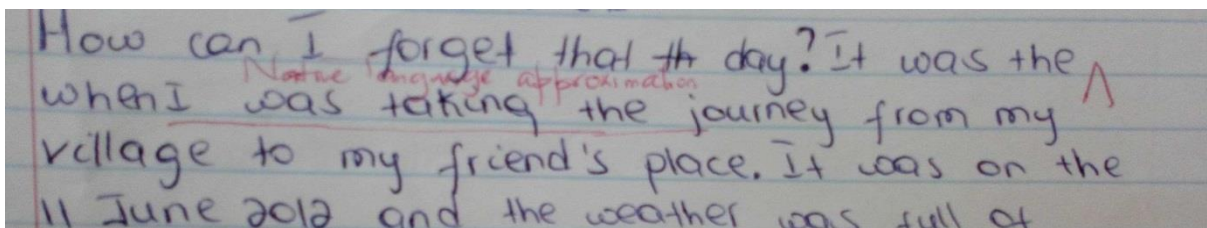 How can I forget that th day? It was the
Native language approximation
when I was taking the journey from my
village to my friend's place. It was on the
11 June 2012 and the weather was full of